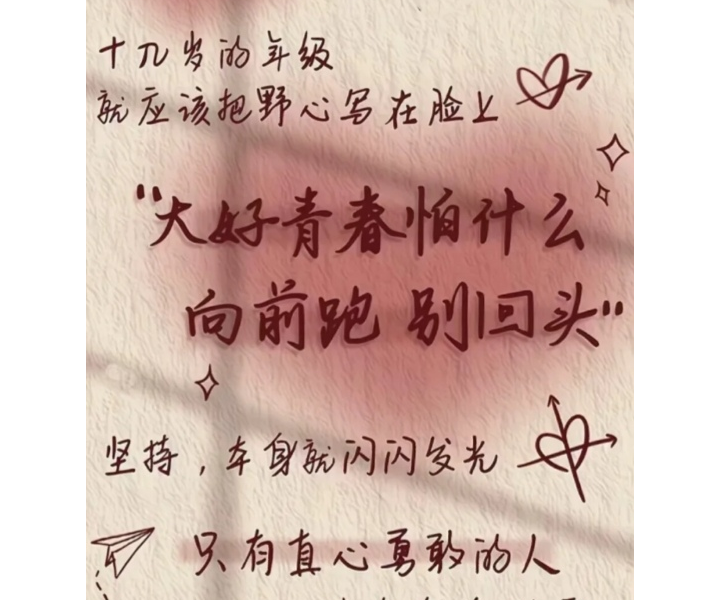 十几岁的年级
就应该把野心写在脸上
"大好青春怕什么
向前跑 别回头"
坚持，本身就闪闪发光
只有真心勇敢的人